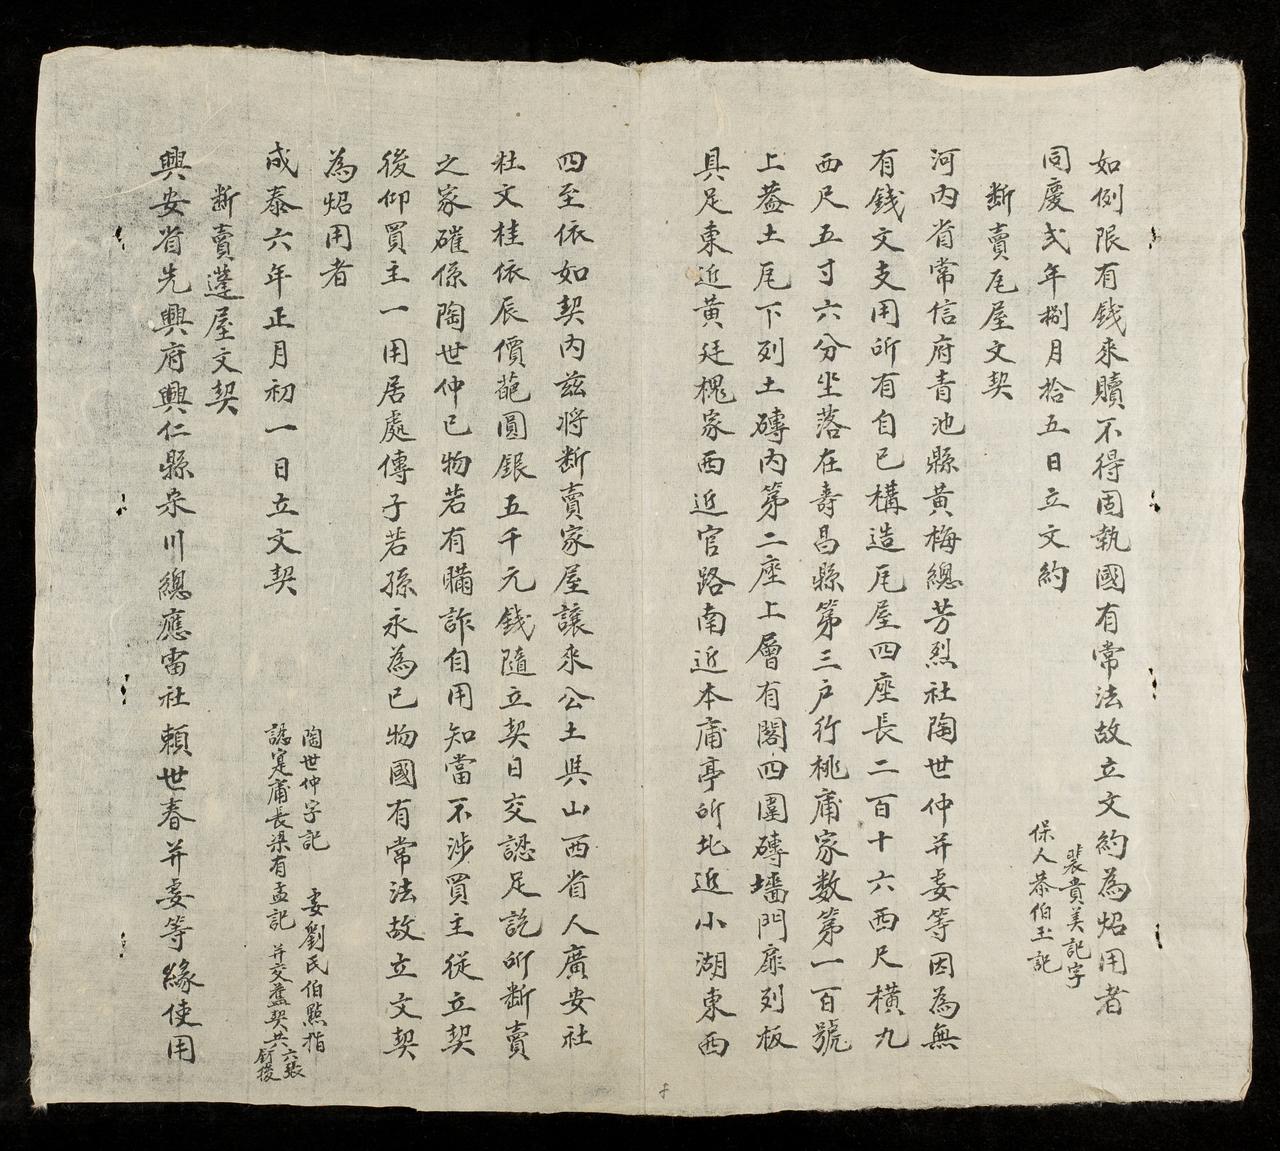 如例限有錢來贖不得固執國有常法故立文約為炤用者
同慶弍年捌月拾五日立文約
裴貴美記字
保人恭伯玉記
断賣瓦屋文契
河内省常信府青池縣黄梅總芳烈社陶世仲并妾等因為無
有錢文支用所有自已構造瓦屋四座長二百十六西尺横九
西尺五寸六分坐落在壽昌縣第三户行桃庯家数第一百號
上蓋土瓦下列土磚内第二座上層有閣四圍磚墻門扉列板
具足東近黄廷槐家西近官路南近本庯亭所北近小湖東西
四至依如契内兹將断賣家屋讓來公土與山西省人廣安社
杜文桂依辰價葩圓銀五千元錢隨立契日交認足訖所断賣
之家確係陶世仲已物若有瞞詐自用知當不涉買主從立契
後仰買主一用居處傳子若孫永為已物國有常法故立文契
為炤用者
成泰六年正月初一日立文契
陶世仲字記 妾劉氏伯點指
認寔庯長梁有孟記 并交盖契共六張
釘後
断賣蓬屋文契
興安省先興府興仁縣朶川總應雷社賴世春并妾等緣使用